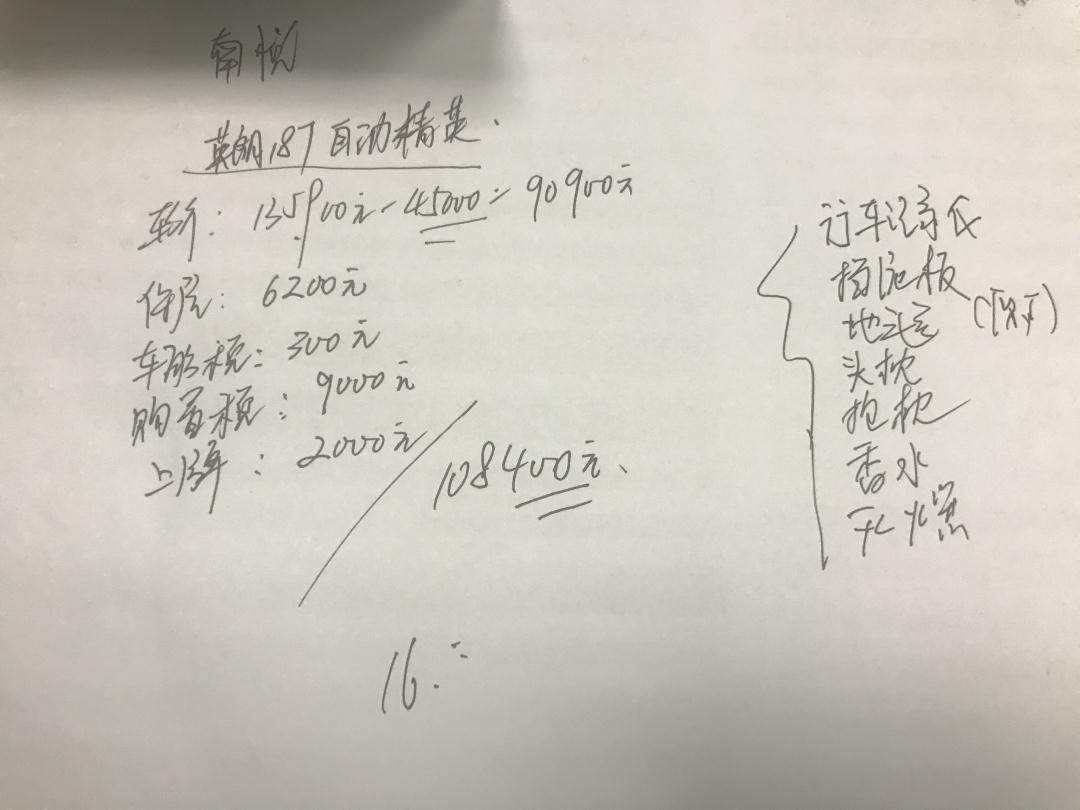 南悦
英朗18T自动精英.
车价: 135900元-45000=90900元
保险: 6200元
车船税: 300元
购置税: 9000元
上牌: 2000元
108400元、
行车记录仪
挡泥板
地毯
头枕
抱枕
香水
灭火器
16.